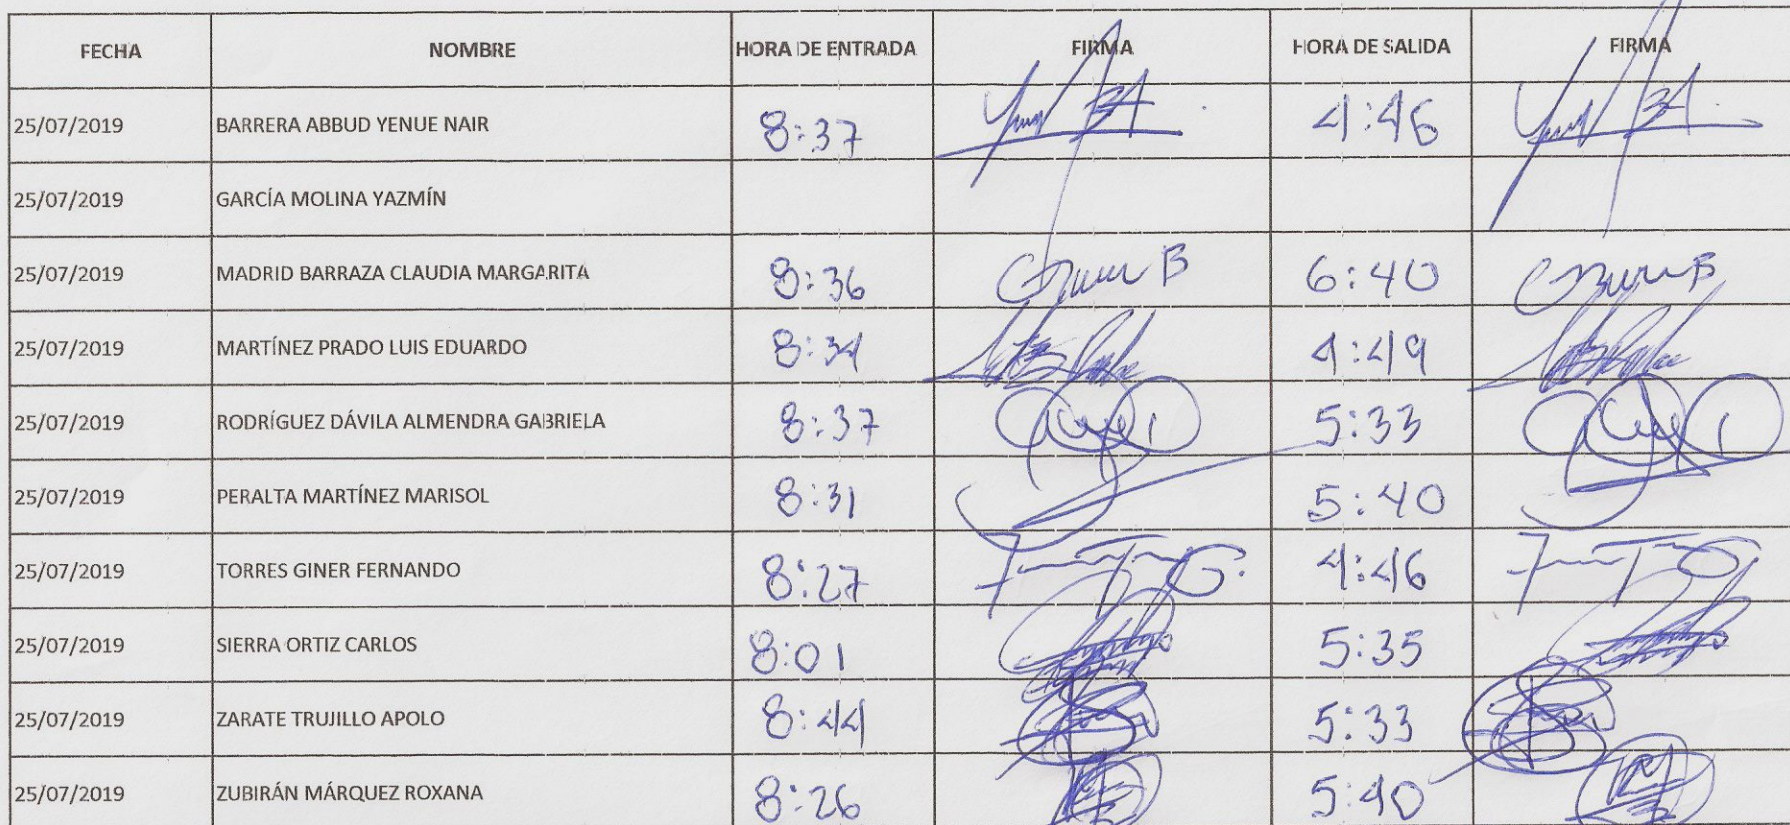 FECHA NOMBRE HORA DE ENTRADA FIRMA HORA DE SALIDA FIRMA
25/07/2019 BARRERA ABBUD YENUE NAIR 8:37 4:46
25/07/2019 GARCÍA MOLINA YAZMÍN
25/07/2019 MADRID BARRAZA CLAUDIA MARGARITA 8:36 6:40
25/07/2019 MARTÍNEZ PRADO LUIS EDUARDO 8:34 4:49
25/07/2019 RODRÍGUEZ DÁVILA ALMENDRA GABRIELA 8:37 5:33
25/07/2019 PERALTA MARTÍNEZ MARISOL 8:31 5:40
25/07/2019 TORRES GINER FERNANDO 8:27 4:46
25/07/2019 SIERRA ORTIZ CARLOS 8:01 5:35
25/07/2019 ZARATE TRUJILLO APOLO 8:44 5:33
25/07/2019 ZUBIRÁN MÁRQUEZ ROXANA 8:26 5:40